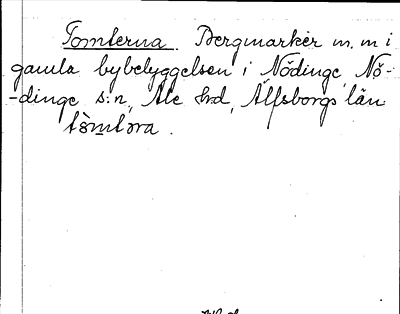 Tomterna. Bergmarker m. m i
gamla bybebyggelsen i Nödinge, Nö-
-dinge s:n, Ale hd, Älfsborgs län
tòmtəra.